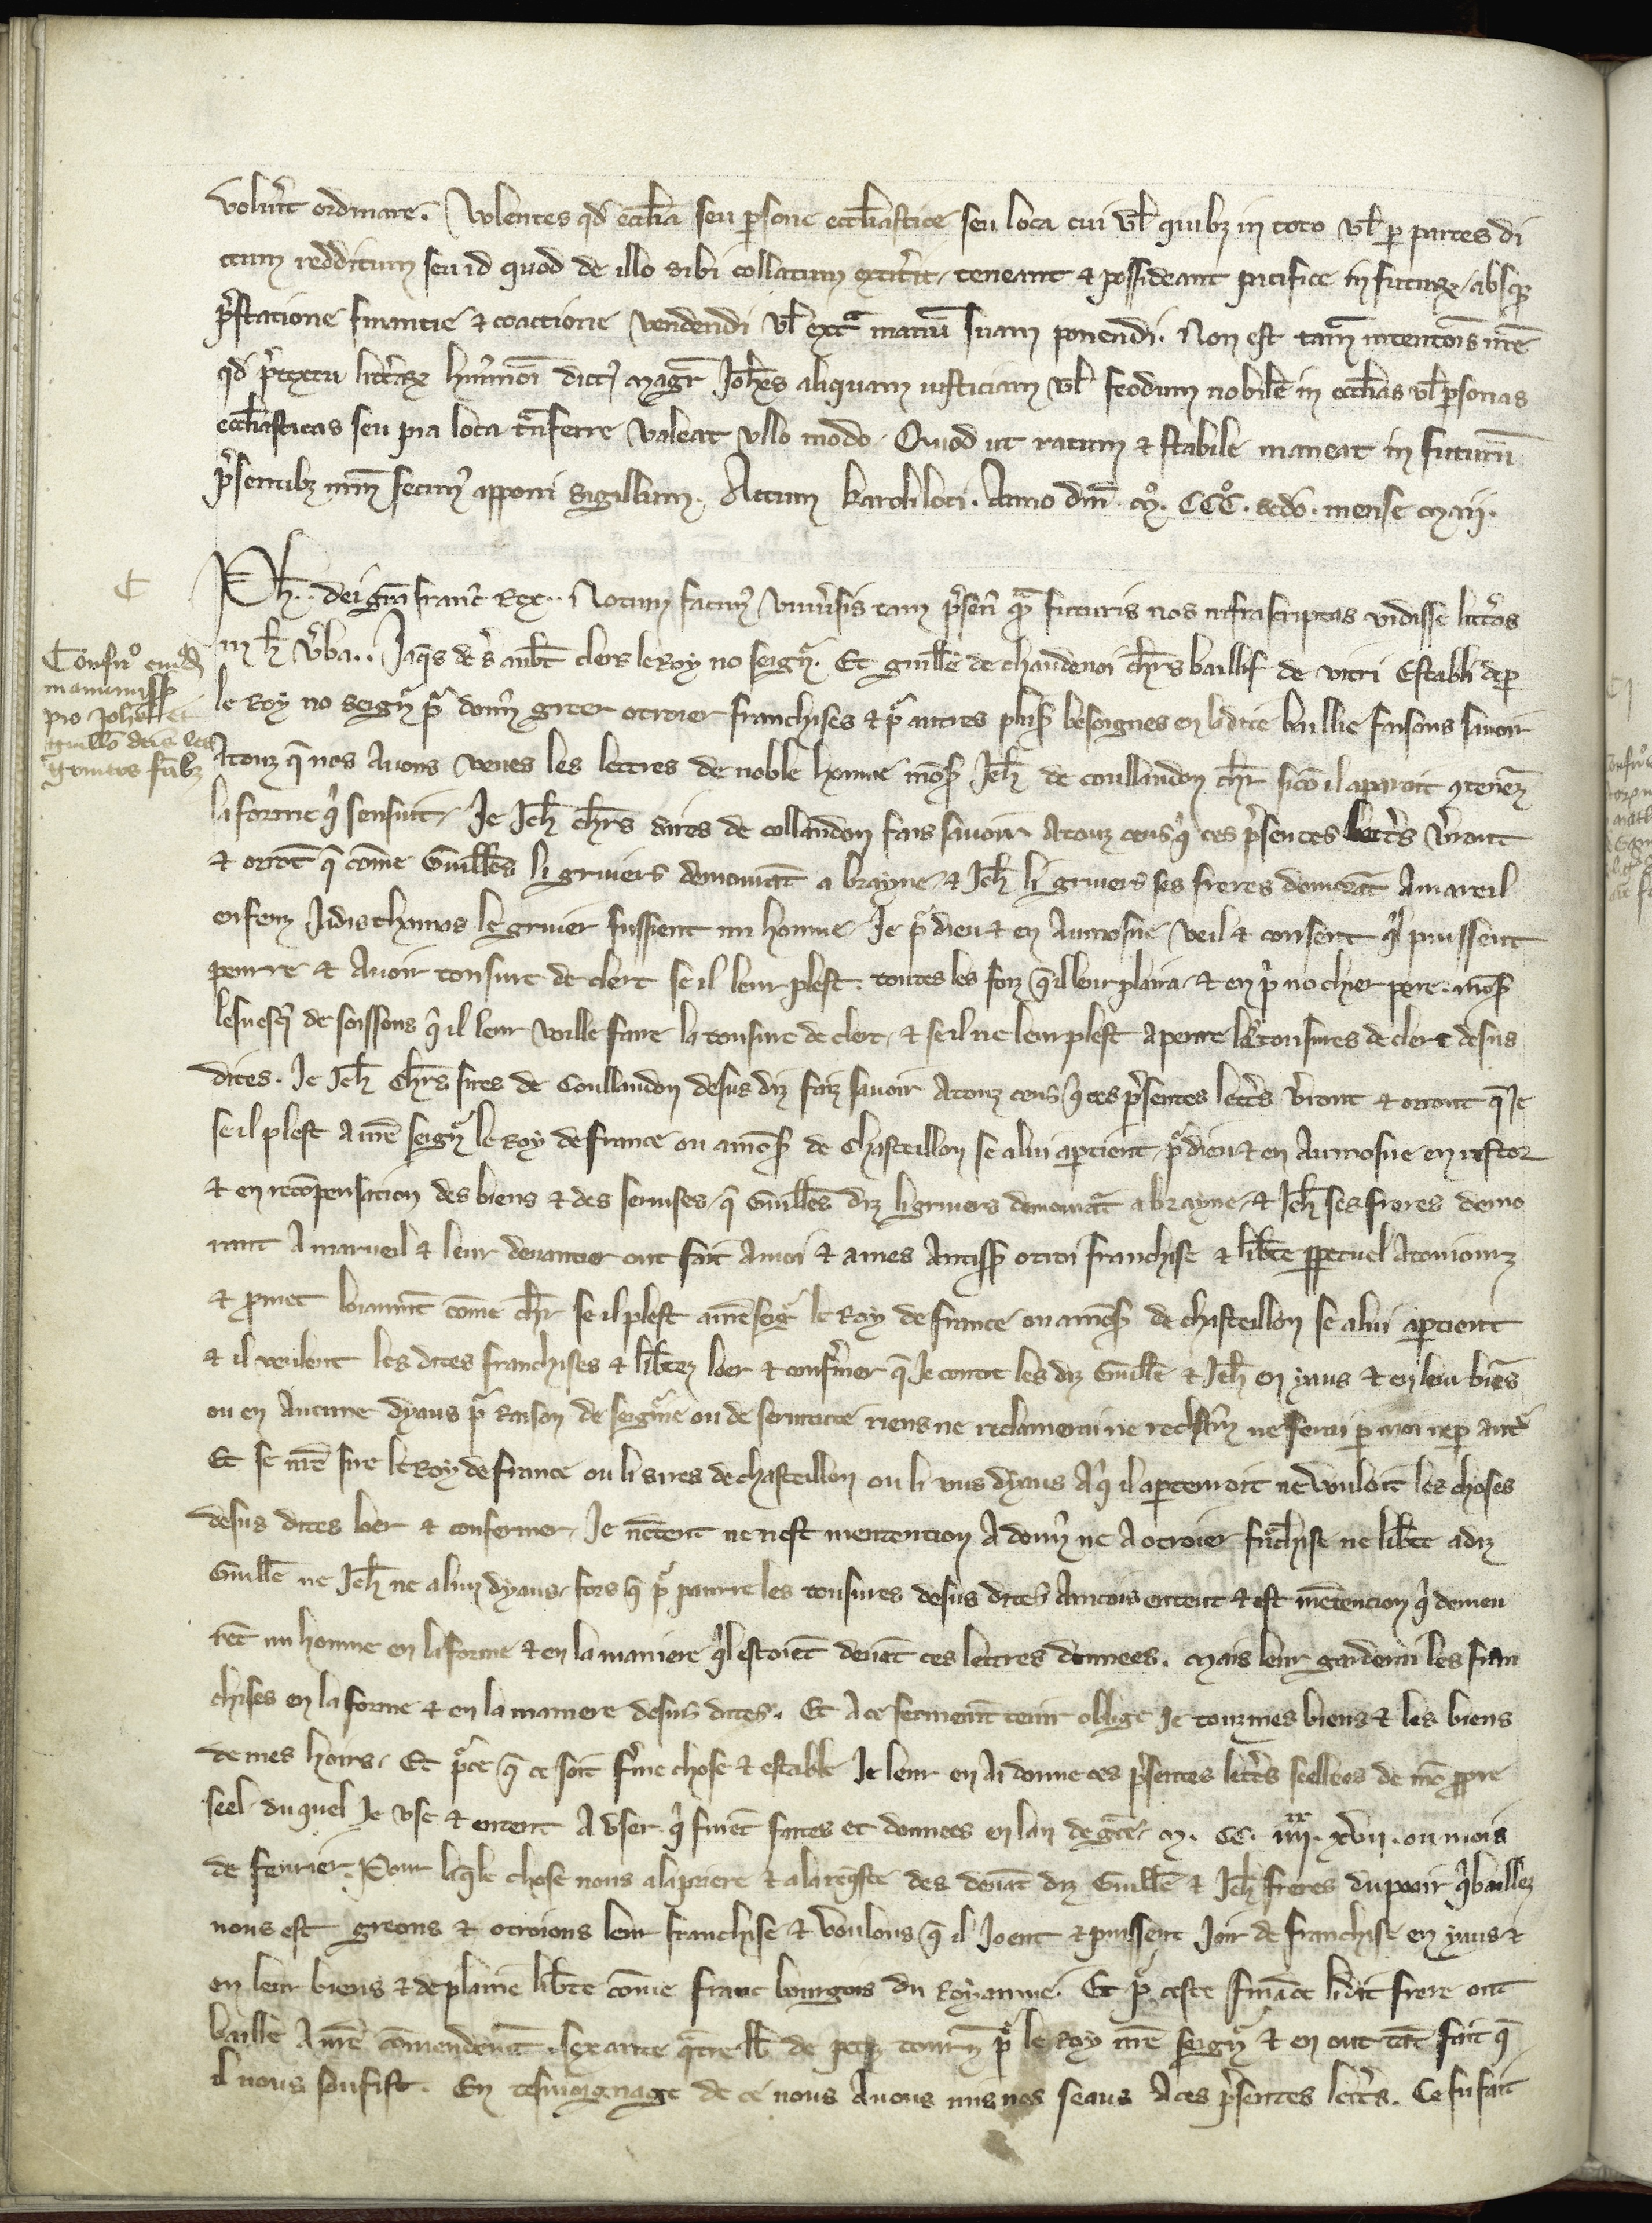 volurit ordinare. Volentes qd ecclia seu psone eccliastice seu loca cui vl quibz in toto vl p partes di
ctum redditum seu id quod de illo sibi collatum extitit, teneant & possideant pacifice in futurum, absqz
pstatione financie & coactione vendendi vl extra manu suam ponendi. Non est tam intentois nre
qd ptextu litterarum huiusmodi dictus magr Iohes aliquam iusticiam vl feodum nobile in ecclias vl psonas
eccliasticas seu pia loca transferre valeat ullo modo. Quod ut ratum & stabile maneat in futuru
psentibz nrm fecimus apponi sigillum. Actum Karoli loci. Anno dni. mo. CCCo. scdo. mense maii.
C
Ph. dei gra franc Rex. Notum facimus universis tam psentibus quam futuris nos infrascriptas vidisse litteras
in h verba. Iaques de s aubt clers le Roy no seigneur. Et guille de chaudenoi chrs baillif de vitri Establi de p
le Roy no seigneur pour donner greer otroier franchises & pour autres plus besoignes en ladite baillie faisons savoir
Atouz que nos Avons veues les lettres de noble homme mons Ieh de coullandon chr sicom il aparoit contenanz
la forme qi sensuit. Ie Ieh chrs sires de collandon fais savoir Atouz ceus qi ces psentes lettres verront
& orront que come Guilles li gruiers demourant a brayne, & Ieh li gruiers ses freres demorant Amareil
enfenz Iadis thomas le gruier fussient mi homme. Ie pour dieu & en Aumosne veil & consent qil puissent
penrre & Avoir tonsure de clerc se il leur plest. toutes les foiz qil leur plaira. & en pri no chier pere. mons
levesque de soissons qil leur voille faire la tonsure de clerc. & se il ne leur plest a penre les tonsures de clerc desus
dites. Ie Ieh chrs sires de Coullandon desus diz faiz savoir Atouz ceus qi ces psentes lettres verront & orront que Ie
se il plest A mre seigneur le Roy de france ou amons de Chasteillon se a lui aptient, pour dieu & en Aumosne en restor
& en recompensacion des biens & des servises, que Guilles diz li gruiers demourant a brayne, & Ieh ses freres demo
rant Amarueil & leur devancier ont fait Amoi & ames Antiss otroi franchise & libte ppetuel Atouiourz
& pmet loiaument come chr se il plest amre seigr le Roy de france ou amons de chasteillon se a lui aptient
& il veulent les dites franchises & libtez loer & confmer que Ie contre les diz Guille & Ieh en yaus & en leur biens
ou en Aucune dyaus pour Raison de seigneurie ou de servitute riens ne reclamerai ne reclamer ne ferai p moi ne p autre
Et se mre sire le Roy de france ou li sires de chasteillon ou li uns dyaus A qi il aptenroit ne vouloit les choses
desus dites loer & confermer, Ie nentent ne nest mentencion A donner ne A otroier franchise ne libte adiz
Guille ne Ieh ne alun dyaus, fors que pour panrre les tonsures desus dites Aincois entent & est mentencion qi demeu
rent mi homme en la forme & en la maniere qil estoient devant ces lettres donnees. mais leur garderai les fran
chises en la forme & en la maniere desus dites. Et Ace fermement tenir oblige Ie touz mes biens & les biens
de mes hoirs. Et pour ce que ce soit ferme chose & estable Ie leur en Ai donne ces psentes lettres seellees de mon ppre
seel. duquel Ie use & entent A user. qi furent faites et donnees en lan de grace. m. CC. iiii xx. xvii. ou mois
de fevrier. Pour laqle chose nous ala priere & ala requeste des devant diz Guille & Ieh freres du pooir qi baillez
nous est greons & otroions leur franchise & voulons que il Ioent & puissent Ioir de franchise en yaus &
en leur biens & de plaine libte come franc bourgois du Royaume. Et pour ceste finance lidit frere ont
baille A mre comendement. sexante quatre lb de petiz tourn pour le Roy mre seigneur & en ont tant fait que
il nous soufist. En tesmoignage de ce nous Avons mis nos seaus Aces psentes lettres. Ce fu fait
Confirmo cuiusdam
manumissionis
pro Iohe et
guillo dcis les
gruiers fribz